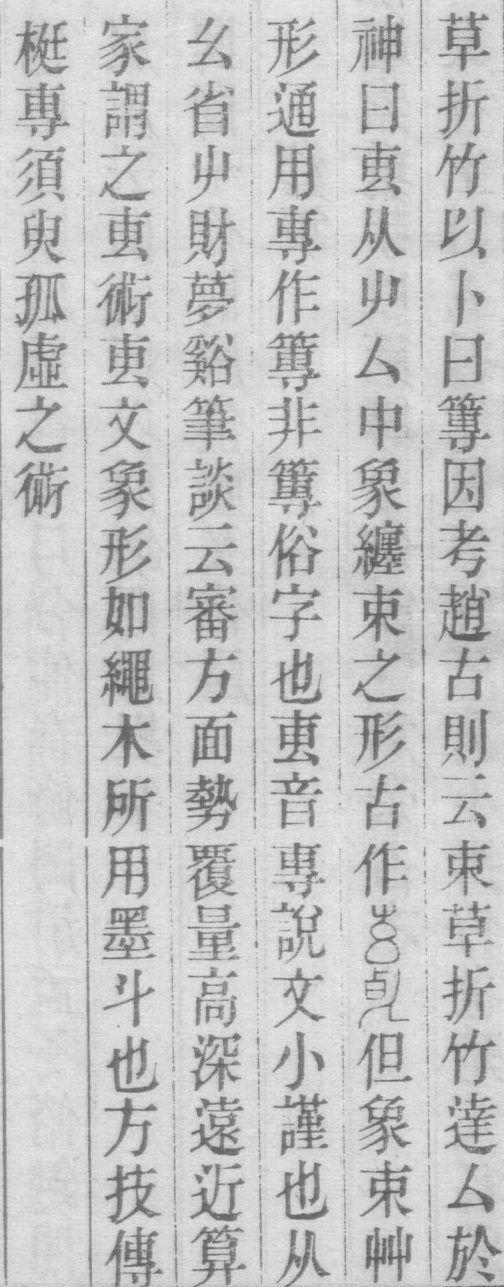 草折竹以卜曰篿因考趙古則云束草折竹達厶於
神曰叀从屮厶中象纏束之形古作但象束艸
形通用專作篿非篿俗字也叀音專說文小謹也从
幺省屮財夢谿筆談云審方面勢覆量高深遠近算
家謂之叀術叀文象形如繩木所用墨斗也方技傳
梃專須臾孤虛之術